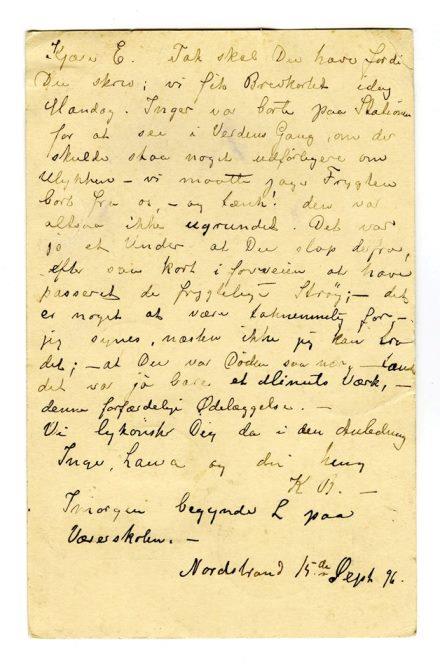 Kjære E. Tak skal Du have fordi
Du skrev; vi fik Brevkortet idag
Mandag. Inger var borte paa Stationen
for at see i Verdens Gang, om der
skulde staa noget udførligere om
Ulykken – vi maatte jage Frygten
bort fra os, – og tænk! den var
altsaa ikke ugrundet. Det var
jo et Under at Du slap derfra,
efter saa kort i forveien at have
passeret de frygtelige Strøg; – det
er noget at være taknemmelig for, –
jeg synes, næsten ikke jeg kan tro
det; – at Du var Døden saa nær, –
det var jo bare et Minuts Værk, –
denne forfærdelige Ødelæggelse. –
Vi lykønsker Dig da i den Anledning
Inger, Laura og din heng
K
Imorgen begynder L paa
Væverskolen. –
Nordstrand 15de Sept 96.